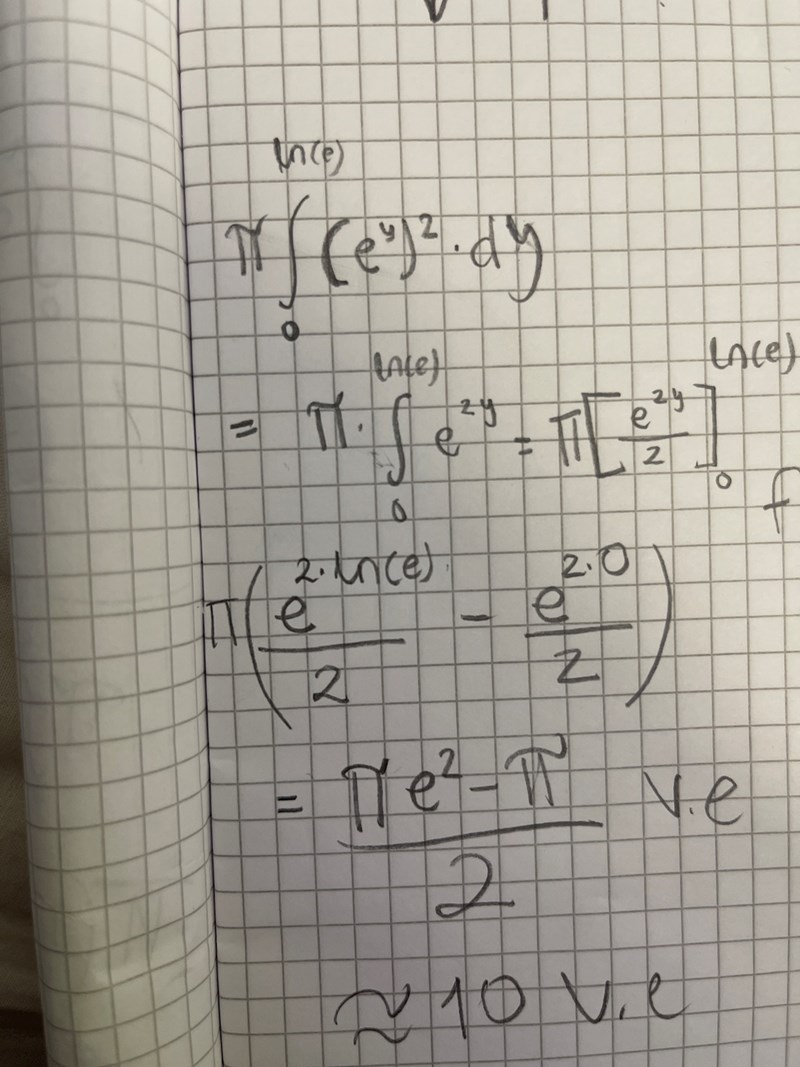 π ∫₀^ln(e) (e^y)² · dy
= π · ∫₀^ln(e) e^2y = π [e^2y / 2]₀^ln(e)
f
π (e^2·ln(e) / 2 - e^2·0 / 2)
= (π e² - π) / 2 v.e
≈ 10 v.e